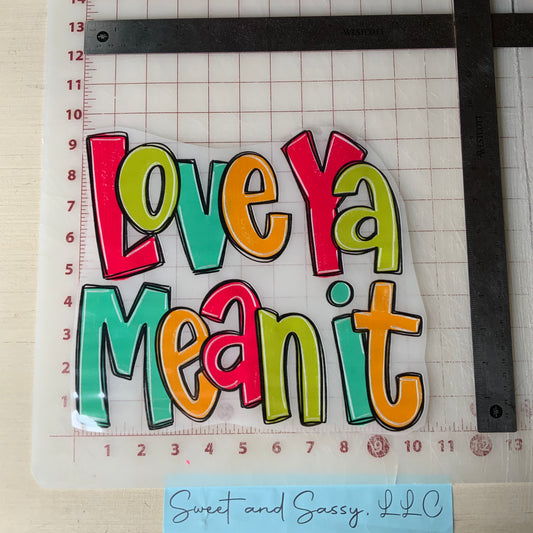 14
13
12
11
10
9
8
7
6
5
4
3
2
1
WESTCOTT
WESTCOTT
Love Ya
Mean it
1 2 3 4 5 6 7 8 9 10 11 12 13
Sweet and Sassy, LLC